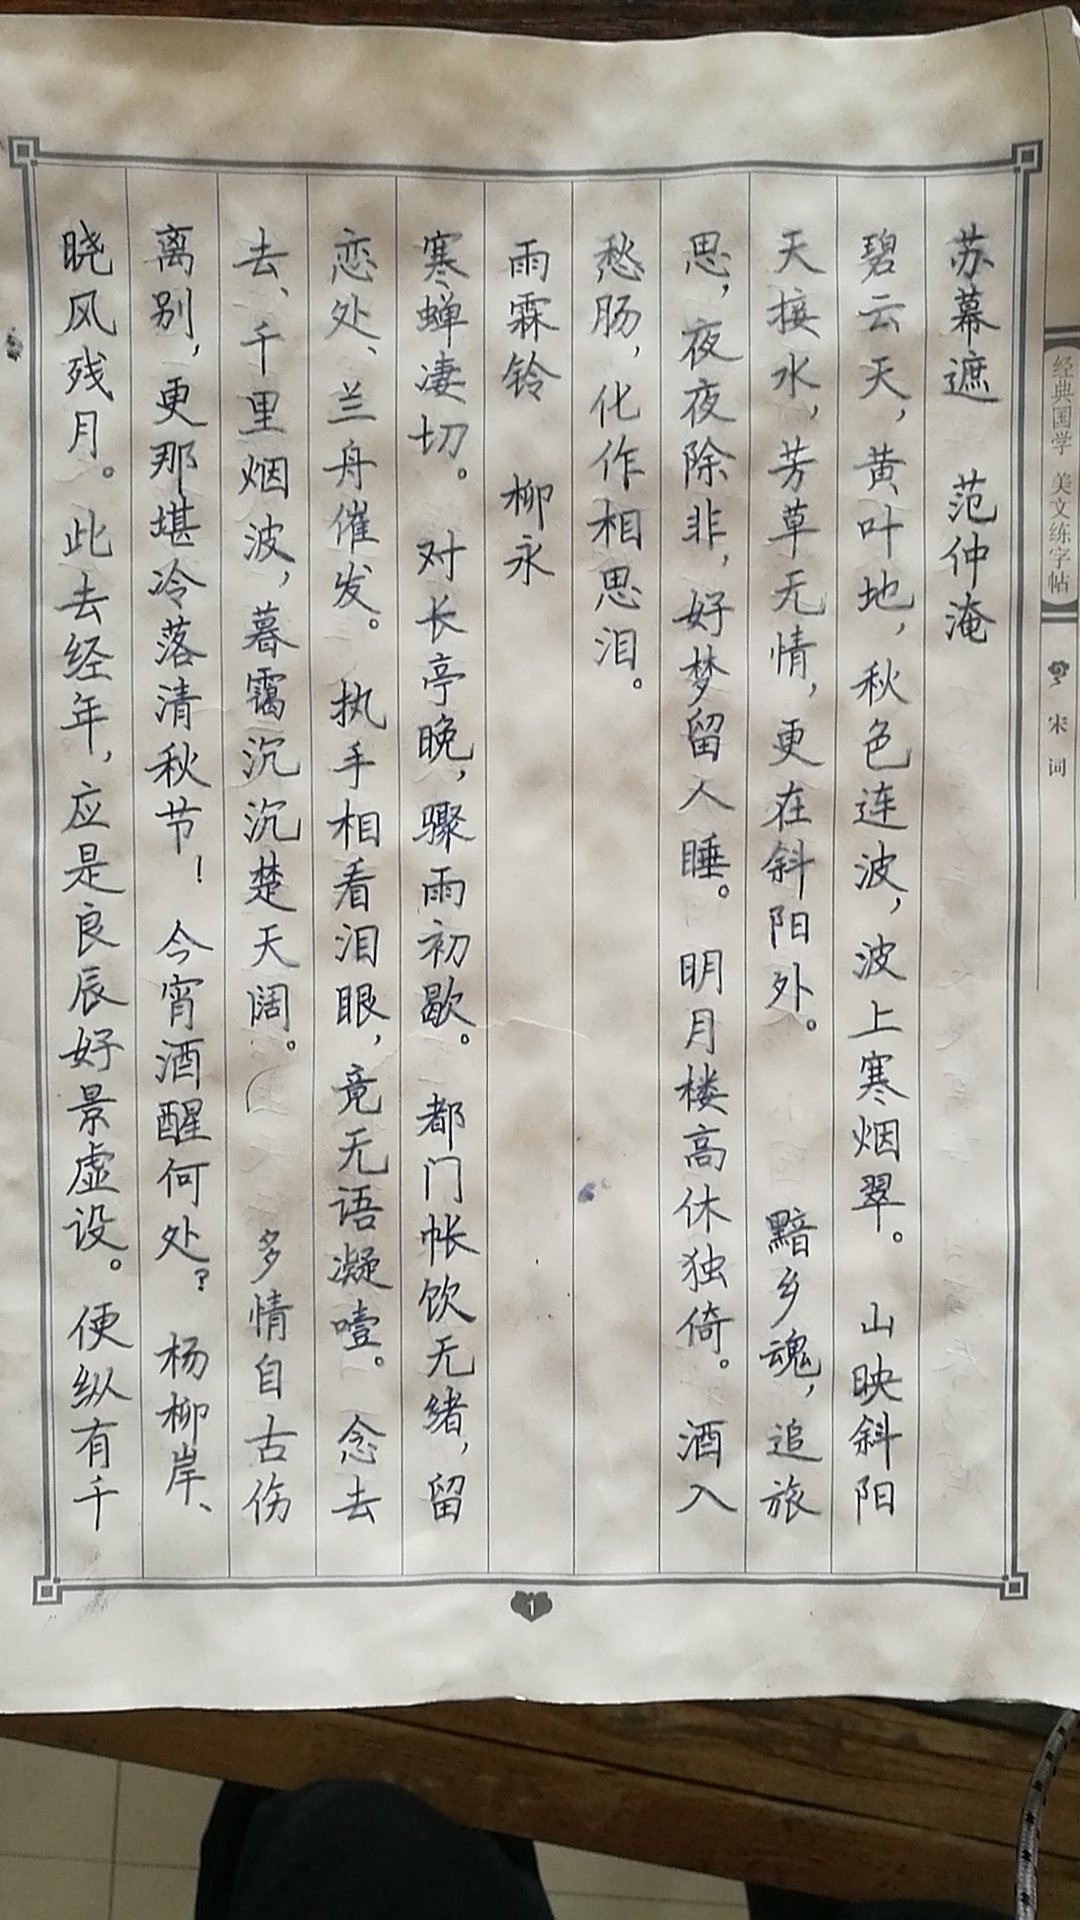 苏幕遮 范仲淹
碧云天，黄叶地，秋色连波，波上寒烟翠。山映斜阳
天接水，芳草无情，更在斜阳外。 黯乡魂，追旅
思，夜夜除非，好梦留人睡。明月楼高休独倚。酒入
愁肠，化作相思泪。
雨霖铃 柳永
寒蝉凄切。对长亭晚，骤雨初歇。都门帐饮无绪，留
恋处、兰舟催发。执手相看泪眼，竟无语凝噎。念去
去、千里烟波，暮霭沉沉楚天阔。 多情自古伤
离别，更那堪冷落清秋节！今宵酒醒何处？杨柳岸、
晓风残月。此去经年，应是良辰好景虚设。便纵有千
经典国学 美文练字帖
宋词
1